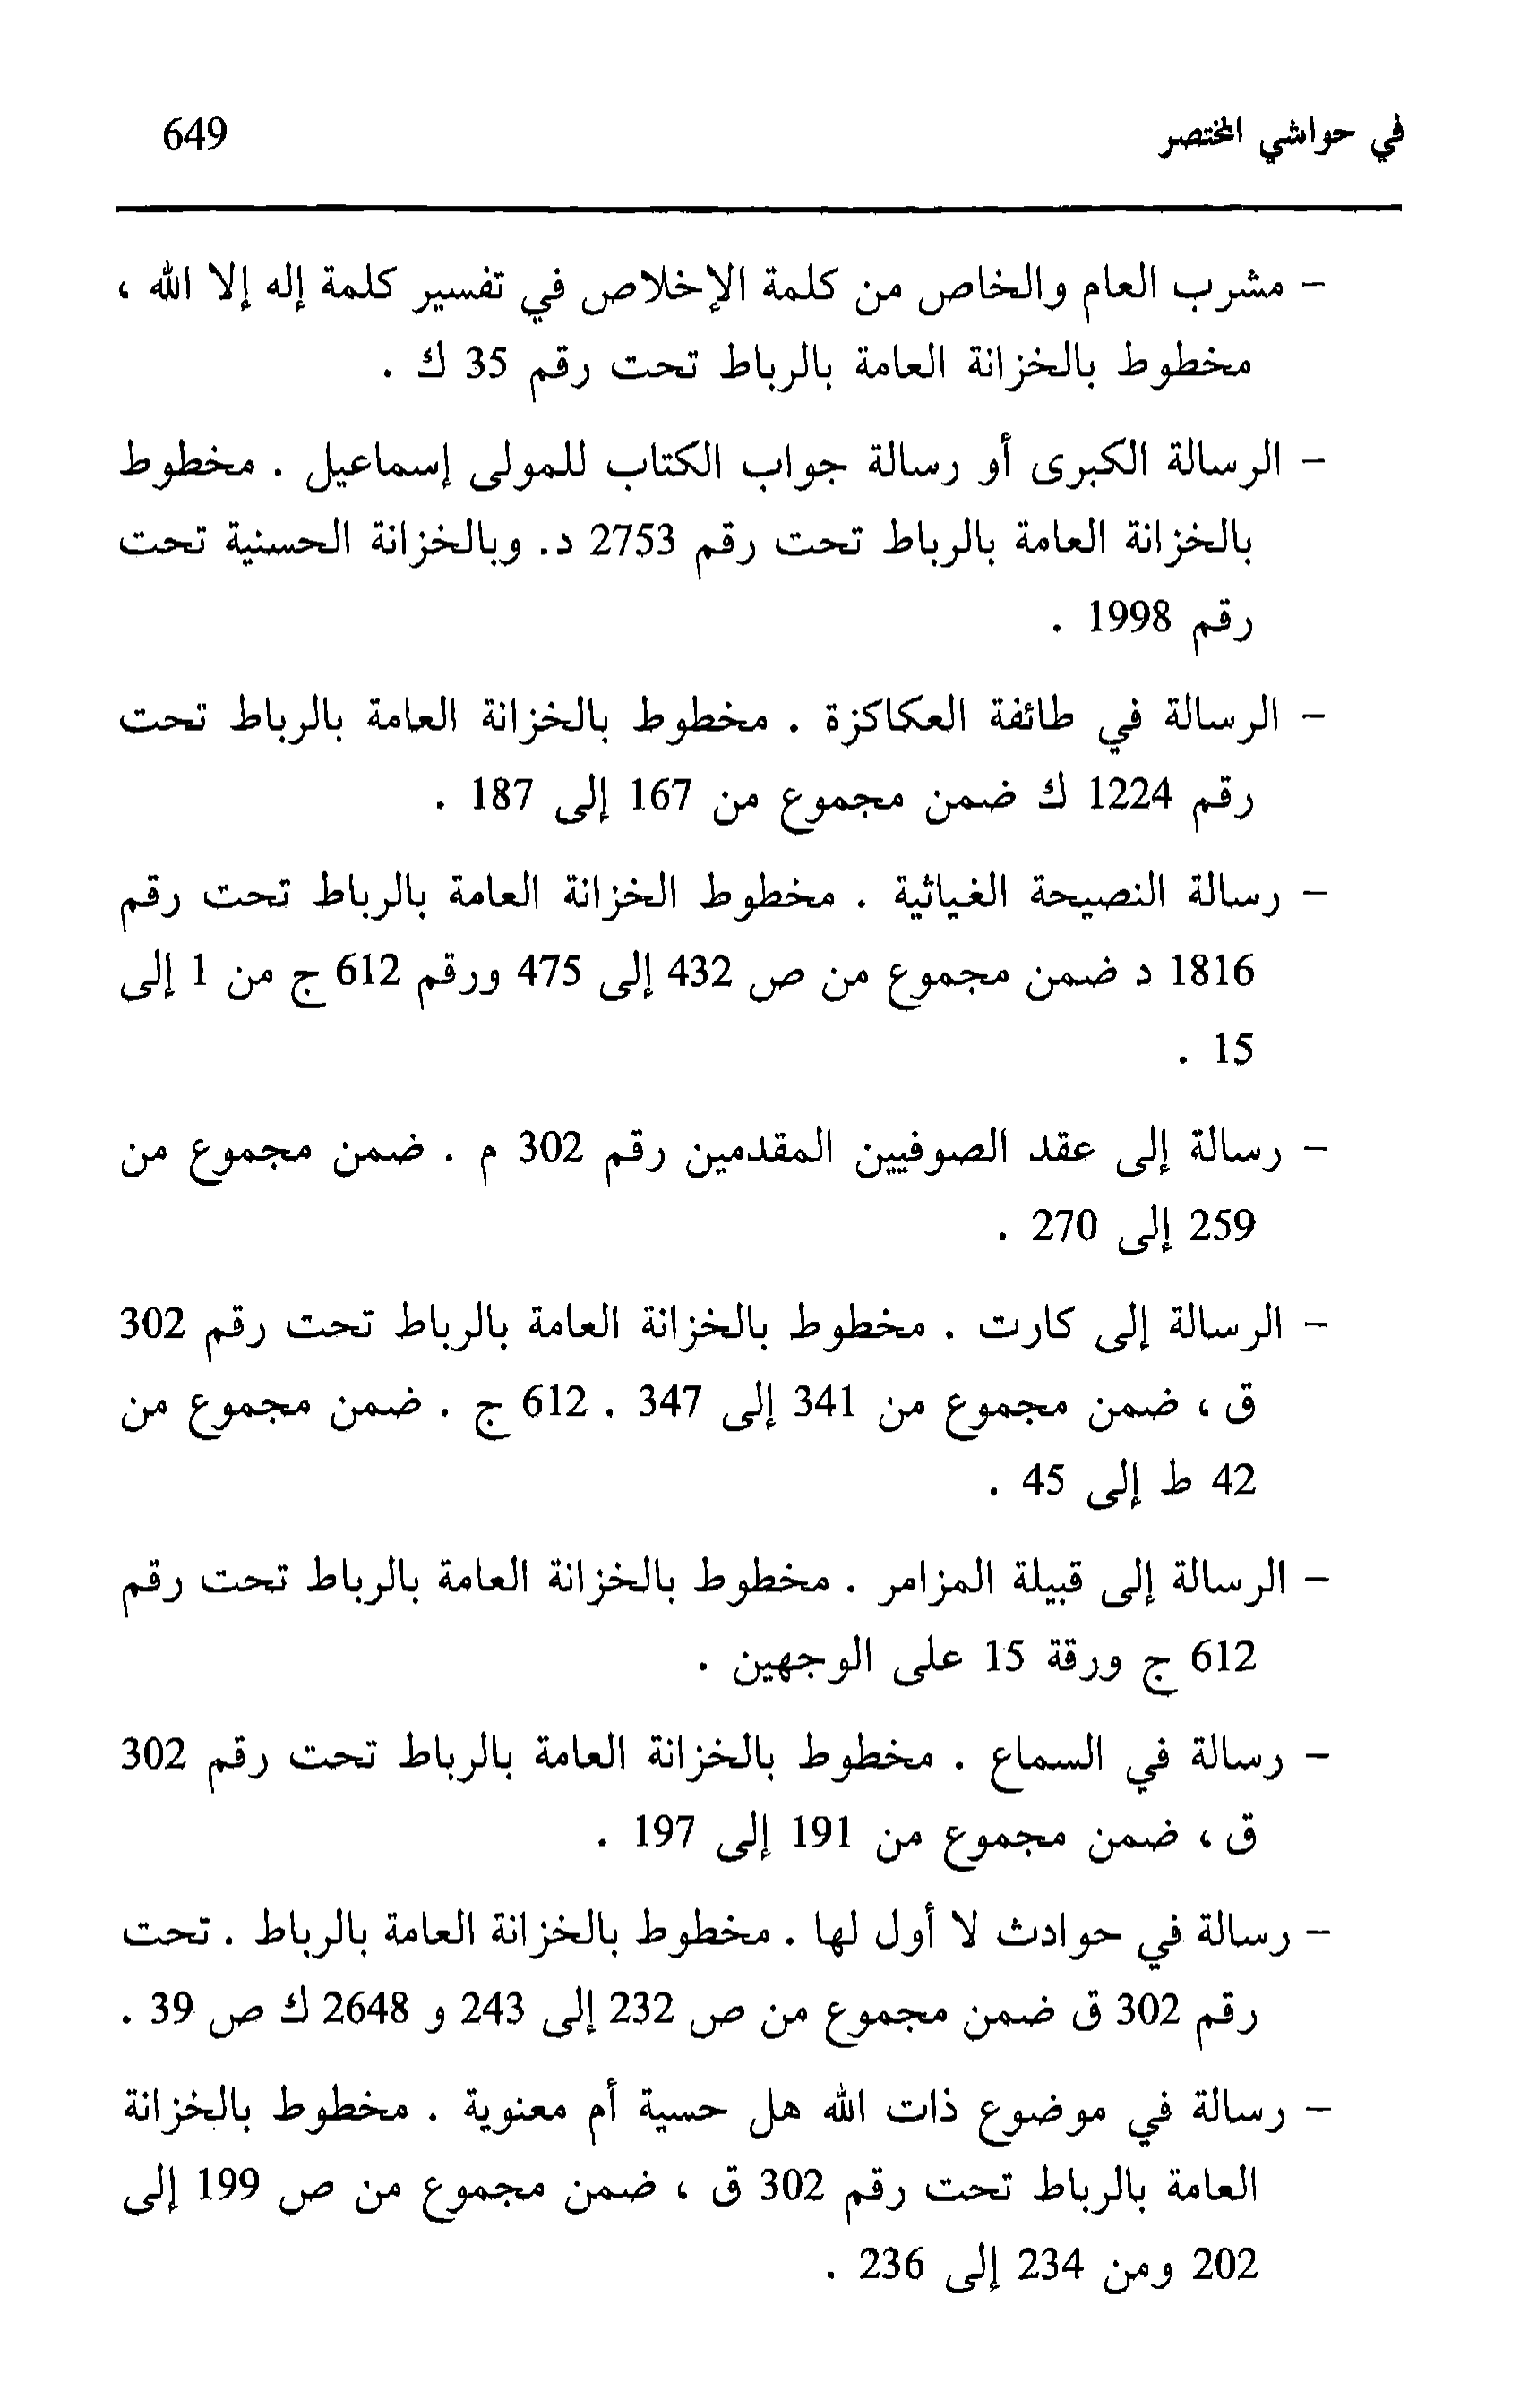 في حواشي المختصر 649
- مشرب العام والخاص من كلمة الإخلاص في تفسير كلمة إله إلا الله ،
مخطوط بالخزانة العامة بالرباط تحت رقم 35 ك .
- الرسالة الكبرى أو رسالة جواب الكتاب للمولى إسماعيل . مخطوط
بالخزانة العامة بالرباط تحت رقم 2753 د. وبالخزانة الحسنية تحت
رقم 1998 .
- الرسالة في طائفة العكاكزة . مخطوط بالخزانة العامة بالرباط تحت
رقم 1224 ك ضمن مجموع من 167 إلى 187 .
- رسالة النصيحة الغياثية . مخطوط الخزانة العامة بالرباط تحت رقم
1816 د ضمن مجموع من ص 432 إلى 475 ورقم 612 ج من 1 إلى
15 .
- رسالة إلى عقد الصوفيين المقدمين رقم 302 م . ضمن مجموع من
259 إلى 270 .
- الرسالة إلى كارت . مخطوط بالخزانة العامة بالرباط تحت رقم 302
ق ، ضمن مجموع من 341 إلى 347 . 612 ج . ضمن مجموع من
42 ط إلى 45 .
- الرسالة إلى قبيلة المزامر . مخطوط بالخزانة العامة بالرباط تحت رقم
612 ج ورقة 15 على الوجهين .
- رسالة في السماع . مخطوط بالخزانة العامة بالرباط تحت رقم 302
ق ، ضمن مجموع من 191 إلى 197 .
- رسالة في حوادث لا أول لها . مخطوط بالخزانة العامة بالرباط . تحت
رقم 302 ق ضمن مجموع من ص 232 إلى 243 و 2648 ك ص 39 .
- رسالة في موضوع ذات الله هل حسية أم معنوية . مخطوط بالخزانة
العامة بالرباط تحت رقم 302 ق ، ضمن مجموع من ص 199 إلى
202 ومن 234 إلى 236 .